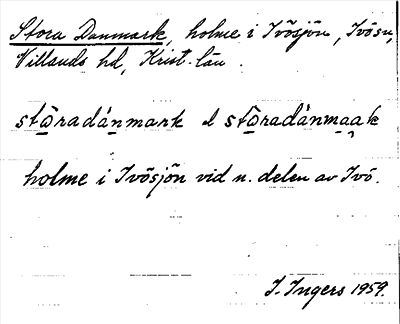 Stora Danmark, holme i Ivösjön, Ivö sn,
Villands hd, Krist. län.
stōradánmark l stōradánmaak
holme i Ivösjön vid n. delen av Ivö.
I. Ingers 1959.